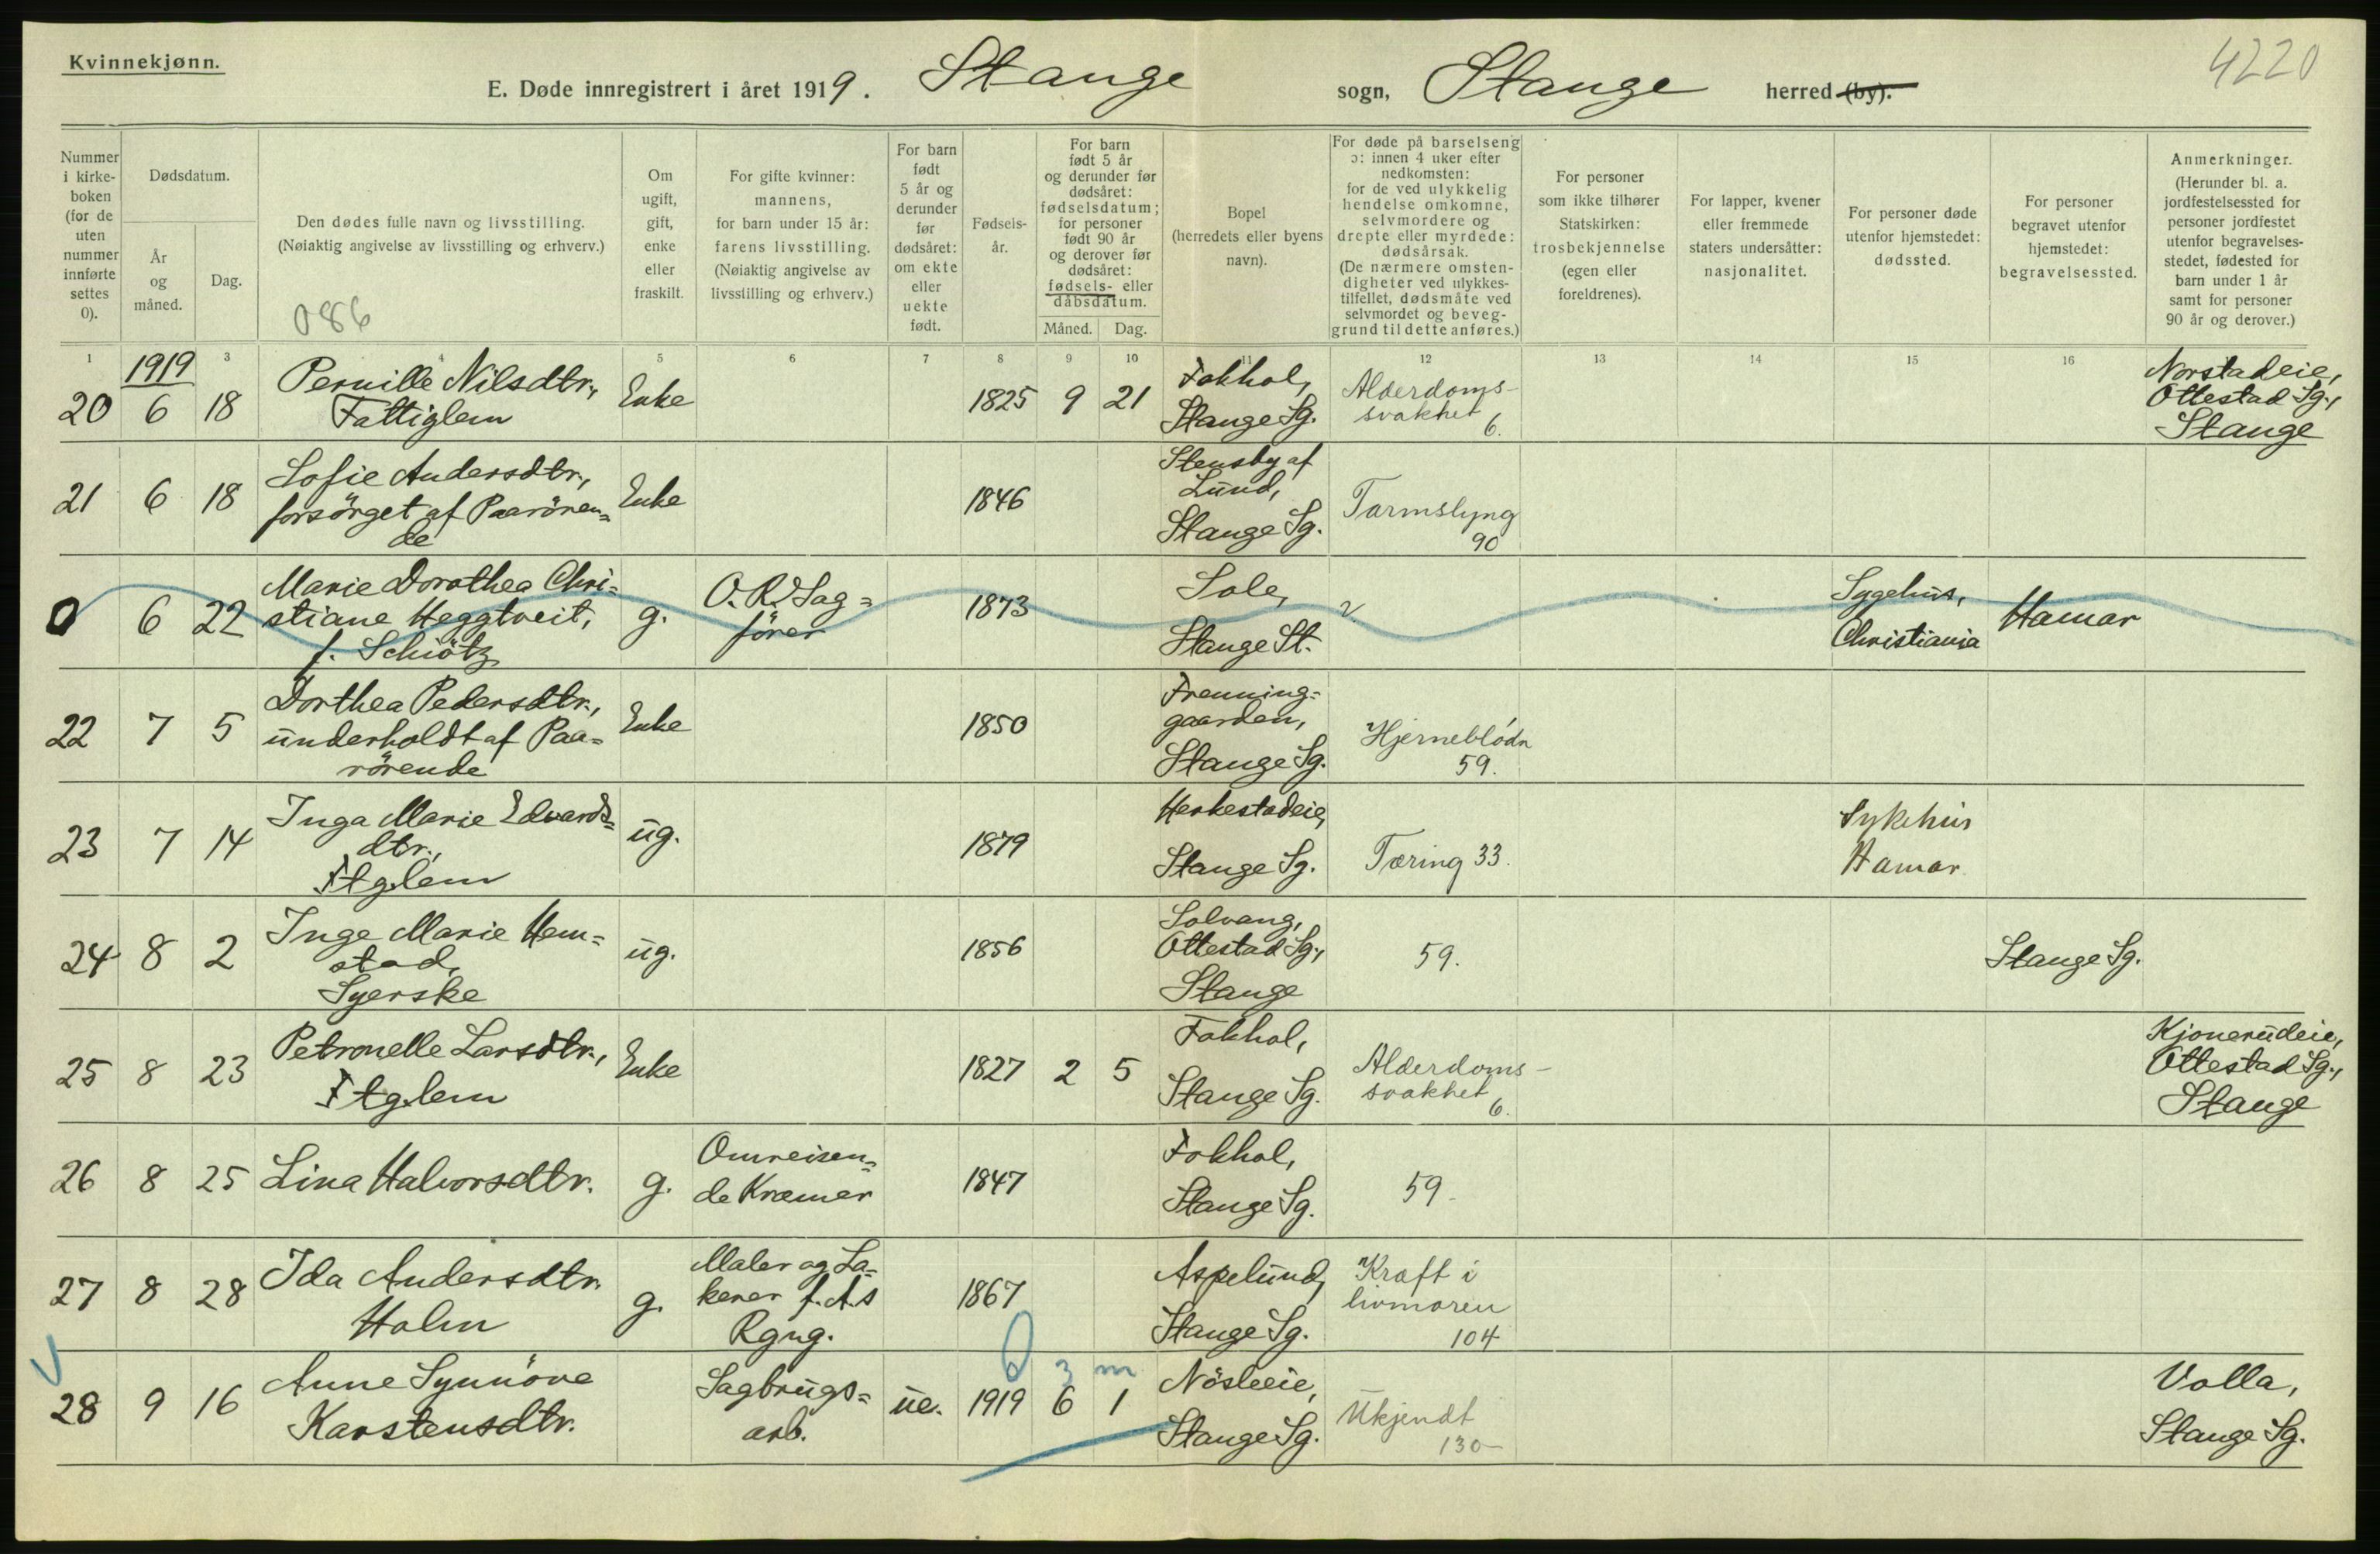 Kvinnekjønn.
4220
E. Døde innregistrert i året 1919. Stange sogn, Stange herred (by).
Nummer i kirke-boken (for de uten nummer innførte settes 0).
Dødsdatum.
År og måned.
Dag.
Den dødes fulle navn og livsstilling.
(Nøiaktig angivelse av livsstilling og erhverv.)
086
Om ugift, gift, enke eller fraskilt.
For gifte kvinner: mannens, for barn under 15 år: farens livsstilling. (Nøiaktig angivelse av livsstilling og erhverv.)
For barn født 5 år og derunder før dødsåret: om ekte eller uekte født.
Fødsels-år.
For barn født 5 år og derunder før dødsåret: fødselsdatum; for personer født 90 år og derover før dødsåret: fødsels- eller dåbsdatum.
Måned. Dag.
Bopel (herredets eller byens navn).
For døde på barselseng ɔ: innen 4 uker efter nedkomsten: for de ved ulykkelig hendelse omkomne, selvmordere og drepte eller myrdede: dødsårsak. (De nærmere omsten-digheter ved ulykkes-tilfellet, dødsmåte ved selvmordet og beveg-grund til dette anføres.)
For personer som ikke tilhører Statskirken: trosbekjennelse (egen eller foreldrenes).
For lapper, kvener eller fremmede staters undersåtter: nasjonalitet.
For personer døde utenfor hjemstedet: dødssted.
For personer begravet utenfor hjemstedet: begravelsessted.
Anmerkninger.
(Herunder bl. a. jordfestelsessted for personer jordfestet utenfor begravelses-stedet, fødested for barn under 1 år samt for personer 90 år og derover.)
1 3 4 5 6 7 8 9 10 11 12 13 14 15 16
1919
20 6 18 Pernille Nilsdtr., Fattiglem Enke 1825 9 21 Fokhol, Stange Sg. Alderdoms-svakhet 6. Norstadeie, Ottestad Sg., Stange
21 6 18 Sofie Andersdtr., forsörget af Paarören=de Enke 1846 Stensby af Lund, Stange Sg. Tarmslyng 90
0 6 22 Marie Dorothea Chri=stiane Heggtveit, f. Schiötz g. O.R.Sag=förer 1873 Sole, Stange St. Sygehus, Christiania Hamar
22 7 5 Dorthea Pedersdtr., underholdt af Paa=rörende Enke 1850 Frenning=gaarden, Stange Sg. Hjerneblödn 59.
23 7 14 Inga Marie Edvards=dtr., Ftg.lem ug. 1879 Herkestadeie, Stange Sg. Tæring 33. Sykehus Hamar
24 8 2 Inge Marie Hem=stad, Syerske ug. 1856 Solvang, Ottestad Sg., Stange 59. Stange Sg.
25 8 23 Petronelle Larsdtr., Ftg.lem Enke 1827 2 5 Fokhol, Stange Sg. Alderdoms-svakhet 6. Kjonerudeie, Ottestad Sg., Stange
26 8 25 Lina Halvorsdtr. g. Omreisen=de Kræmer 1847 Fokhol, Stange Sg. 59
27 8 28 Ida Andersdtr. Holm g. Maler og La=kerer f.A.s Rgng. 1867 Aspelund, Stange Sg. Kræft i livmoren 104
28 9 16 Anne Synnöve Karstensdtr. Sagbrugs=arb. ue. 1919 6 1 3 m Nösleeie, Stange Sg. Ukjendt 130 Volla, Stange Sg.